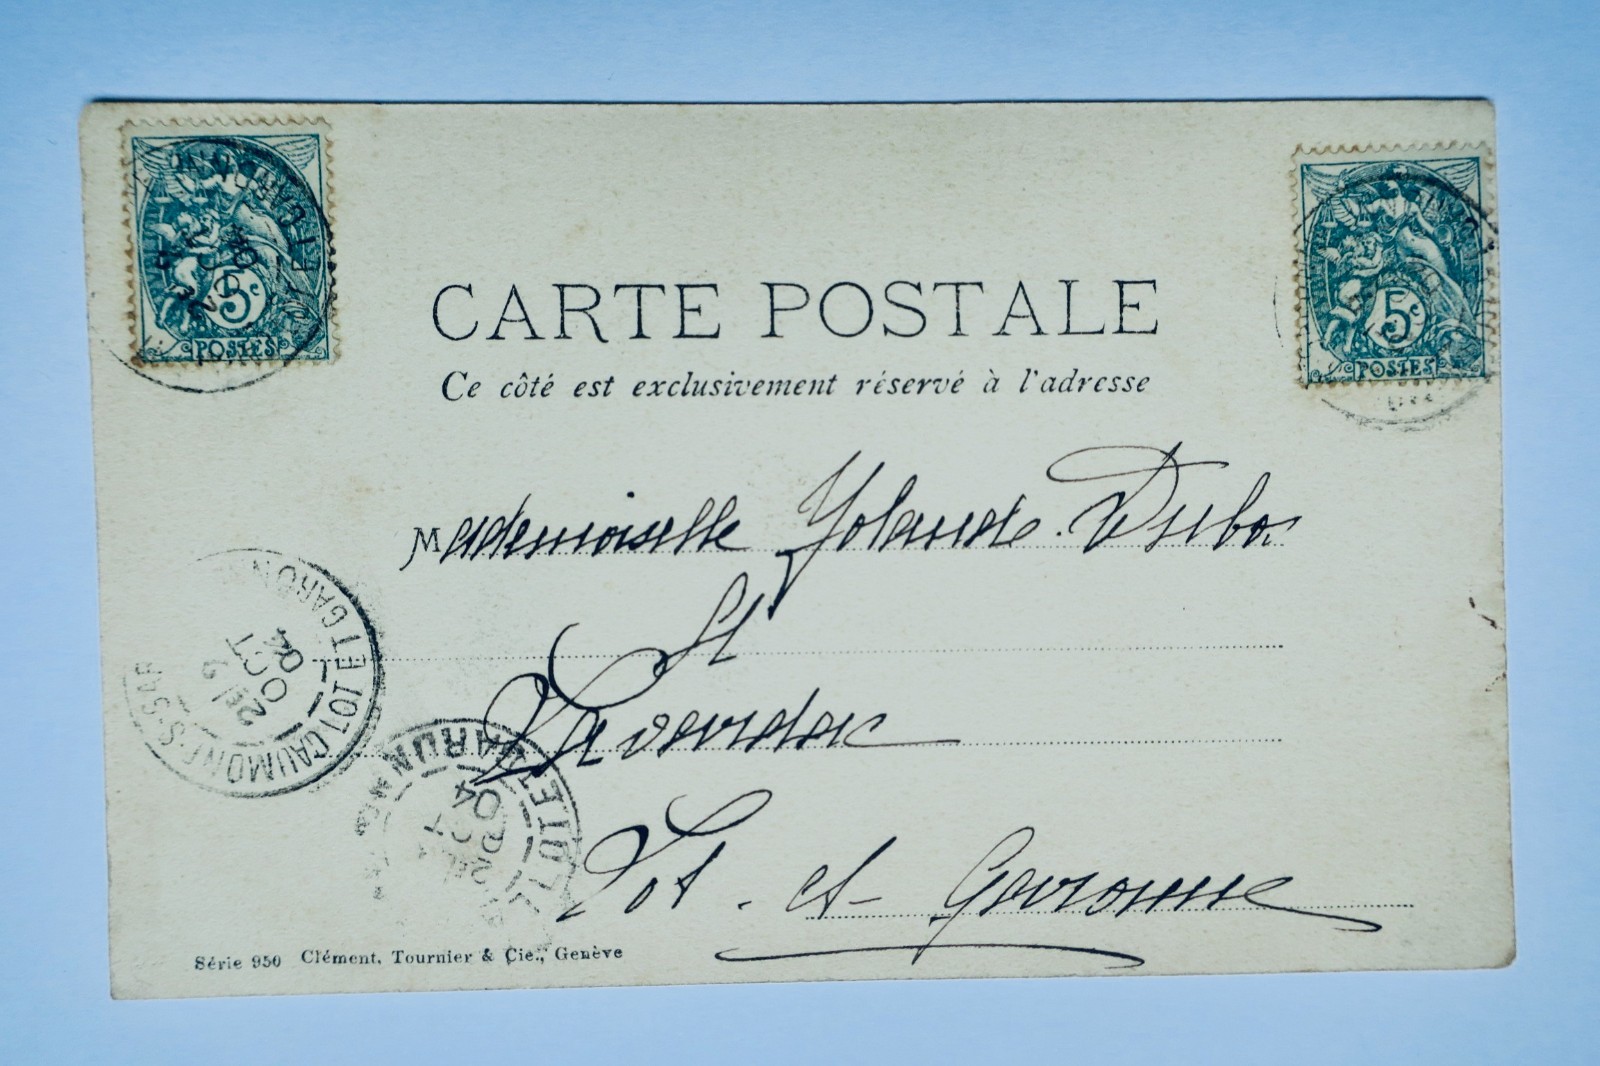 5c
POSTES
5c
POSTES
CARTE POSTALE
Ce côté est exclusivement réservé à l'adresse
Mademoiselle Yolande Dubos
St
Lavardac
Lot-et-Garonne
CAUMONT-S-GAR LOT ET GARONNE
2E/ 9
OCT
04
LOT ET GARONNE
OCT
04
Série 950 Clément, Tournier & Cie., Genève